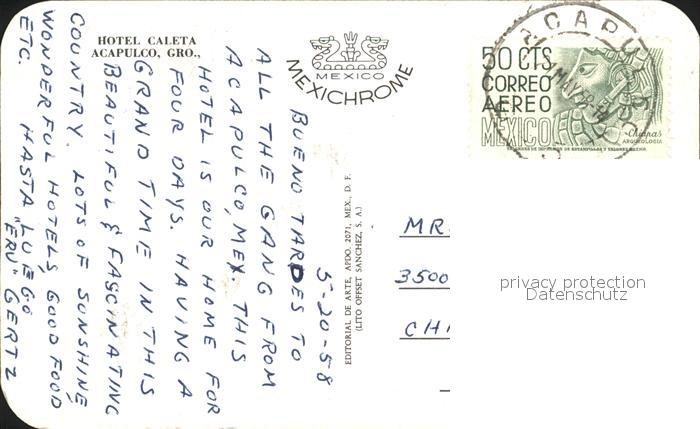 HOTEL CALETA
ACAPULCO, GRO.,
MEXICO
MEXICHROME
5-20-58
BUENO TARDES TO
ALL THE GANG FROM
ACAPULCO, MEX. THIS
HOTEL IS OUR HOME FOR
FOUR DAYS. HAVING A
GRAND TIME IN THIS
BEAUTIFUL & FASCINATING
COUNTRY. LOTS OF SUNSHINE
WONDERFUL HOTELS, GOOD FOOD
ETC. HASTA LUEGO
"ERV" GERTZ
EDITORIAL DE ARTE, APDO. 2071, MEX., D. F.
(LITO OFFSET SANCHEZ, S. A.)
50 CTS
CORREO
AEREO
MEXICO
Chiapas
ARQUEOLOGIA
ACAPUL
MR.
3500
CHI
privacy protection
Datenschutz